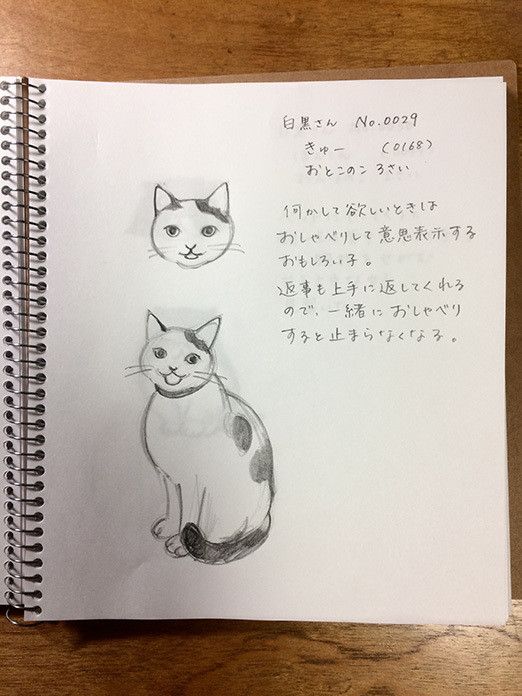 白黒さん No.0029
きゅー (0168)
おとこのこ 3さい
何かして欲しいときは
おしゃべりして意思表示する
おもしろい子。
返事も上手に返してくれる
ので、一緒におしゃべり
すると止まらなくなる。